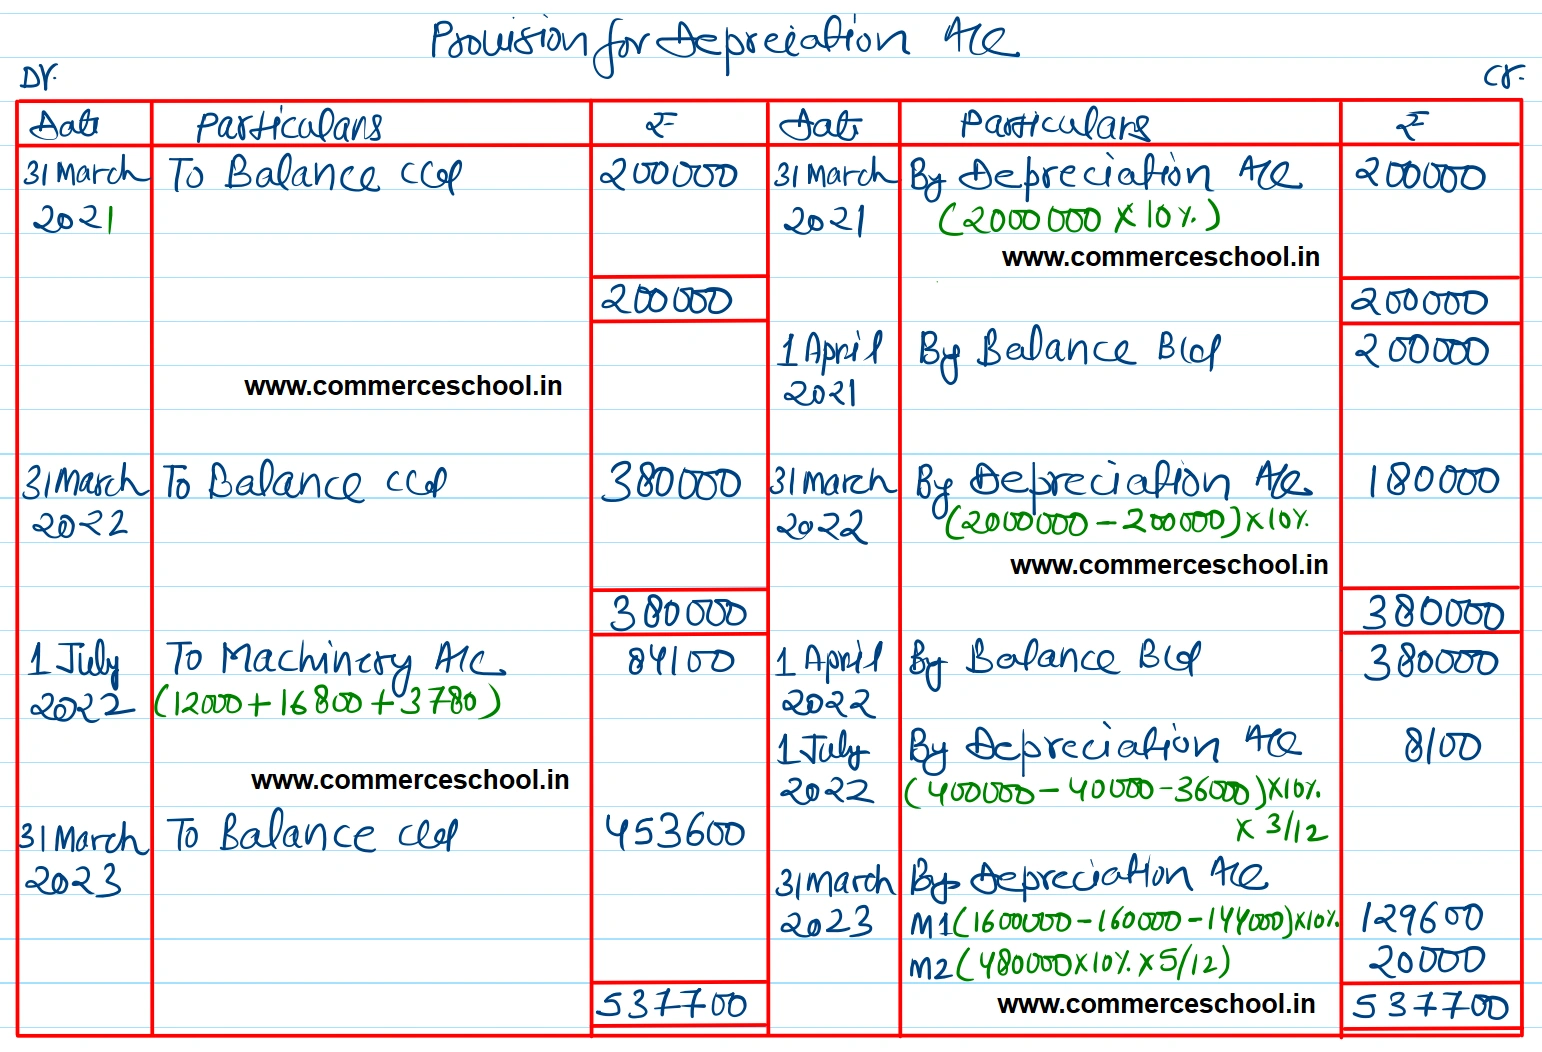 Provision for Depreciation A/c
Dr.
Cr.
Date Particulars ₹ Date Particulars ₹
31 March To Balance c/d 200000 31 March By Depreciation A/c 200000
2021 2021 (2000000 X 10%)
www.commerceschool.in
200000 200000
1 April By Balance B/d 200000
www.commerceschool.in 2021
31 March To Balance c/d 380000 31 March By Depreciation A/c 180000
2022 2022 (2000000 - 200000) x 10%
www.commerceschool.in
380000 380000
1 July To Machinery A/c 84100 1 April By Balance B/d 380000
2022 (12000 + 16800 + 3780) 2022
1 July By Depreciation A/c 8100
www.commerceschool.in 2022 (400000 - 40000 - 36000) x 10%
x 3/12
31 March To Balance c/d 453600
2023 31 March By Depreciation A/c
2023 M1 (1600000 - 160000 - 144000) x 10% 129600
M2 (480000 x 10% x 5/12) 20000
537700 www.commerceschool.in 537700